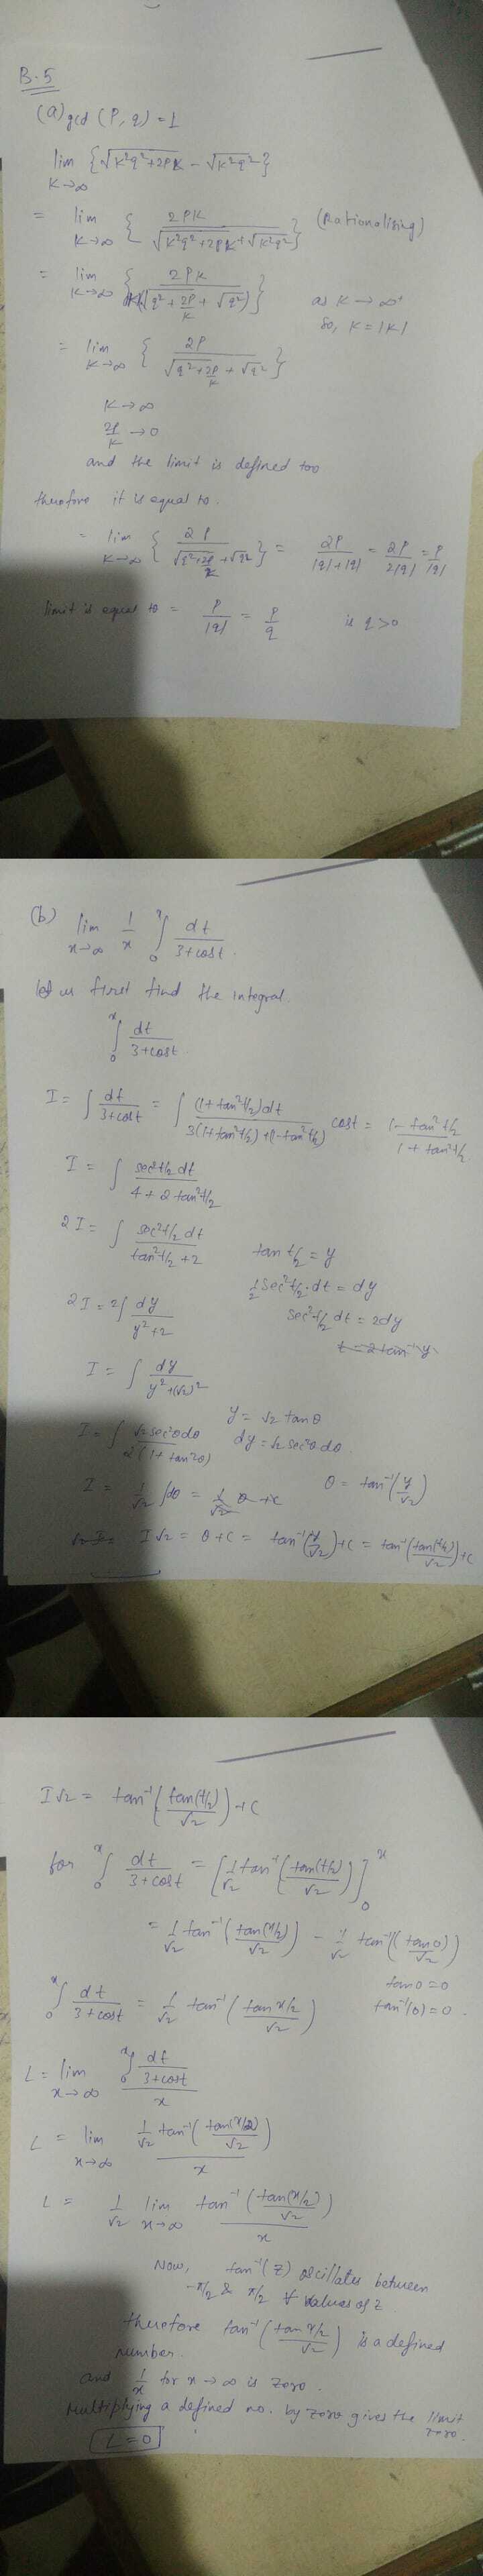 B.5
(a) gcd (P, q) = 1
lim K→∞ {√(K²q²+2PK) - √(K²q²)}
= lim K→∞ { 2PK / (√(K²q²+2PK) + √(K²q²)) } (Rationalising)
= lim K→∞ { 2PK / (K(√(q²+2P/K) + √(q²))) } as K → ∞⁺
So, K = |K|
= lim K→∞ { 2P / (√(q²+2P/K) + √(q²)) }
K → ∞
2P/K → 0
and the limit is defined too
therefore it is equal to.
= lim K→∞ { 2P / (√(q²+2P/K) + √q²) } = 2P/(|q|+|q|) = 2P/2|q| = P/|q|
limit is equal to = P/|q| = P/q is q>0
(b) lim x→∞ 1/x ∫₀ˣ dt/(3+cost).
let us first find the integral.
∫₀ˣ dt/(3+cost)
I = ∫ dt/(3+cost) = ∫ (1+tan²t/2)dt / (3(1+tan²t/2)+(1-tan²t/2)) cost = (1-tan²t/2)/(1+tan²t/2)
I = ∫ sec²t/2 dt / (4+2tan²t/2)
2I = ∫ sec²t/2 dt / (tan²t/2+2) tan t/2 = y
1/2 sec²t/2.dt = dy
2I = 2∫ dy/(y²+2) sec²t/2 dt = 2dy
t = 2tan⁻¹y
I = ∫ dy/(y²+(√2)²)
y = √2 tanθ
I = ∫ √2sec²θdθ / 2(1+tan²θ) dy = √2 sec²θ dθ.
I = 1/√2 ∫dθ = 1/√2 θ +c θ = tan⁻¹(y/√2)
I√2 = θ+c = tan⁻¹(y/√2)+c = tan⁻¹(tan(t/2)/√2)+c
I√2 = tan⁻¹(tan(t/2)/√2)+c
for ∫₀ˣ dt/(3+cost) = [1/√2 tan⁻¹(tan(t/2)/√2)]₀ˣ
= 1/√2 tan⁻¹(tan(x/2)/√2) - 1/√2 tan⁻¹(tan0/√2)
tan0=0
∫₀ˣ dt/(3+cost) = 1/√2 tan⁻¹(tan x/2 / √2) tan⁻¹(0)=0.
L = lim x→∞ (∫₀ˣ dt/(3+cost)) / x
L = lim x→∞ (1/√2 tan⁻¹(tan(x/2)/√2)) / x
L = 1/√2 lim x→∞ tan⁻¹(tan(x/2)/√2) / x
Now, tan⁻¹(z) oscillates between
-π/2 & π/2 ∀ values of z.
therefore tan⁻¹(tan x/2 / √2) is a defined
number.
and 1/x for x→∞ is zero.
Multiplying a defined no. by zero gives the limit
zero.
L=0